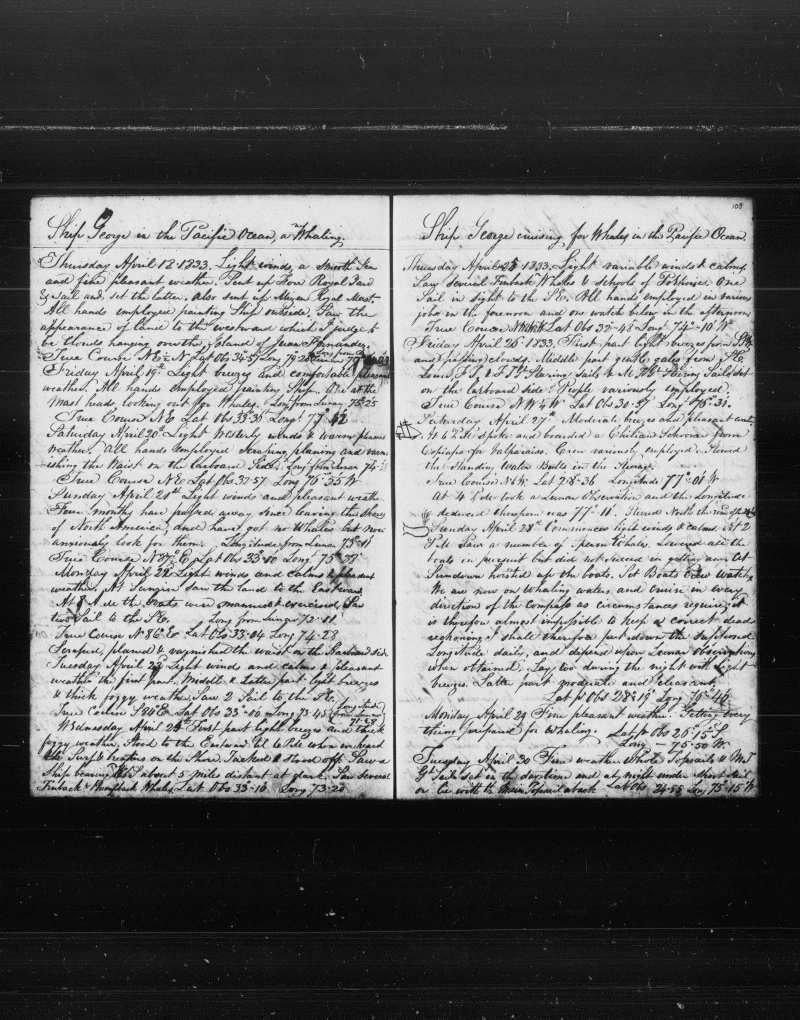 Ship George in the Pacific Ocean, a Whaling.
Thursday April 18 1833. Light winds, a smooth Sea
and fine pleasant weather. Sent up Fore Royal Yard
& Sail and set the latter. Also sent up Mizen Royal Mast.
All hands employed painting Ship outside. Saw the
appearance of land to the westward which I judge to
be clouds hanging over the Island of Juan Fernandez.
True Course N E ½ N Lat Obs 34-57 Long 79-28
Friday April 19th Light breezes and comfortable pleasant
weather. All hands employed painting Ship. One at the
Mast heads looking out for Whales. Long from Lunar 75-25
True Course N E Lat Obs 33-30 Long 77 42
Saturday April 20th Light Westerly winds & warm pleasant
weather. All hands employed scraping, planing and varn
ishing the Waist on the Larboard Side. Long from Lunar 74-
True Course N E Lat Obs 32-57 Long 76-55 W
Sunday April 21st Light winds and pleasant weather
Four months have passed away since leaving the Shores
of North America, and have got no Whales but now
anxiously look for them. Longitude from Lunar 75-11
True Course E Lat Obs 33-10 Long 75-37
Monday April 22d Light winds and calms & pleasant
weather. At Sunrise saw the land to the Eastward
At 8 A M the boats were manned & exercised. Saw
two Sail to the SE. Long from Lunar 73-11
True Course N 86° E Lat Obs 33-04 Long 74-28
Scraped, planed & varnished the waist on the Starboard Side
Tuesday April 23d Light wind and calms & pleasant
weather the first part. Middle & Latter part light breezes
& thick foggy weather. Saw 2 Sail to the SE.
True Course S 84° E Lat Obs 33-16 Long 73-45 Long
from Lunar
71-58
Wednesday April 24th First part light breezes and thick
foggy weather. Stood to the Eastward til 6 P M when we heard
the Surf & breakers on the Shore. Tacked & Stood off. Saw a
Ship bearing about 5 miles distant at dark. Saw Several
Finback & Humpback Whales. Lat Obs 33-10 Long 73-20
103
Ship George cruising for Whales in the Pacific Ocean
Thursday April 25 1833. Light variable winds & calms
Saw Several Finback Whales & schools of Porpoises. One
Sail in sight to the SE. All hands employed in various
jobs in the forenoon and one watch below in the afternoon
True Course Lat Obs 32-43 Long 74-10 W
Friday April 26th 1833. First part light breezes from
and passing clouds. Middle part gentle gales from SE
Lower F T & F T G Steering Sails & M Steering Sails set
on the larboard side. People variously employed.
True Course N W ¼ W Lat Obs 30-57 Long 76-31
Saturday April 27th Moderate breezes and pleasant weath
At 6 spoke and boarded a Chilian Schooner from
Copiapo for Valparaiso. Crew variously employed. Stowed
the Standing Water Butts in the Steerage.
True Course N 6 W Lat 28-36 Longitude 77-01 W
At 4 took a Lunar Observation and the Longitude
deduced therefrom was 77-11.
Sunday April 28th Commences light winds & calms. At 2
P M Saw a number of Sperm Whales. Lowered all the
boats in pursuit but did not succeed in getting any. At
Sundown hoisted up the boats. Set Boats Crew Watches
We are now on Whaling waters and cruise in every
direction of the Compass as circumstances require, it
is therefore almost impossible to keep a correct dead
reckoning. I shall therefore put down the Supposed
Longitude daily, and depend upon Lunar Observations
when obtained. Lay too during the night with light
breezes. Latter part moderate and pleasant
Lat pr Obs 28-19 Long 76-45
Monday April 29 Fine pleasant weather. Getting every
thing prepared for Whaling. Lat pr Obs 26-15 S.
Long - 75-50 W.
Tuesday April 30 Fine weather. Whole Topsails & M T
Gt Sails set in the daytime and at night under short sail
or lie with the Main Topsail aback Lat Obs 24-55 Long 75-15 W